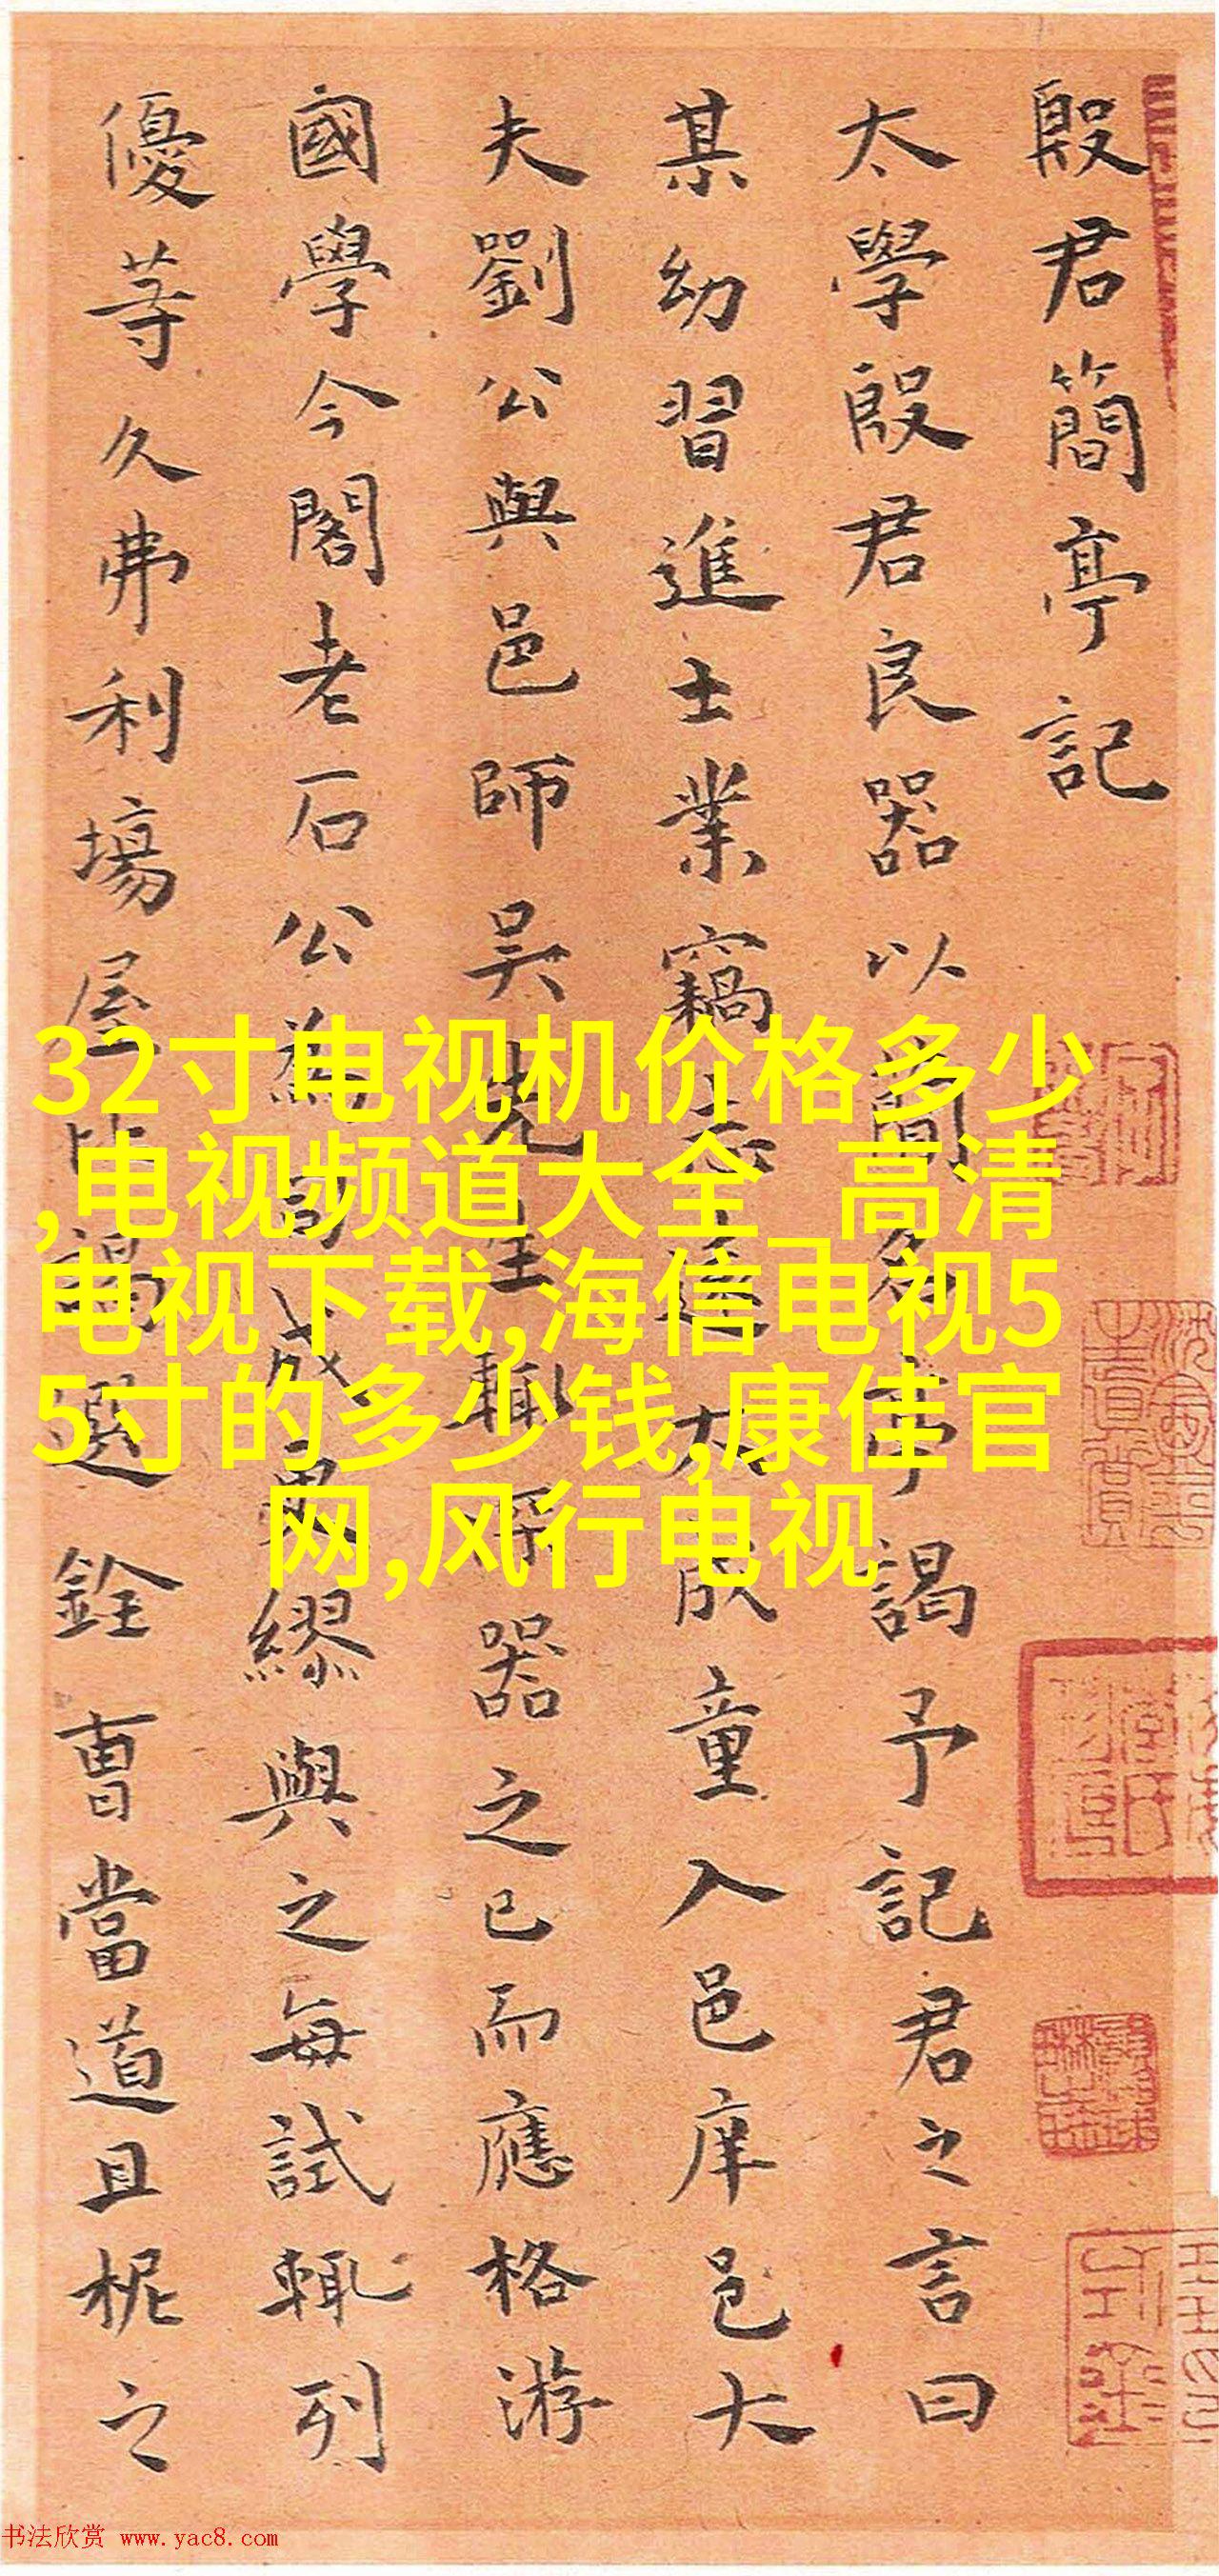 殷君簡亭記
太學殷君良器以簡名亭謁予記君之言曰
某幼習進士業竊志遠大成童入邑庠邑大
夫劉公與邑師吳先生聊器之已而應格游
國學今閣老石公為司成界繆與之每試輒列
優等久弗利場屋比謁選銓曹當道且柅之
32寸电视机价格多少
,电视频道大全_高清
电视下载,海信电视5
5寸的多少钱,康佳官
网,风行电视
书法欣赏 www.yac8.com